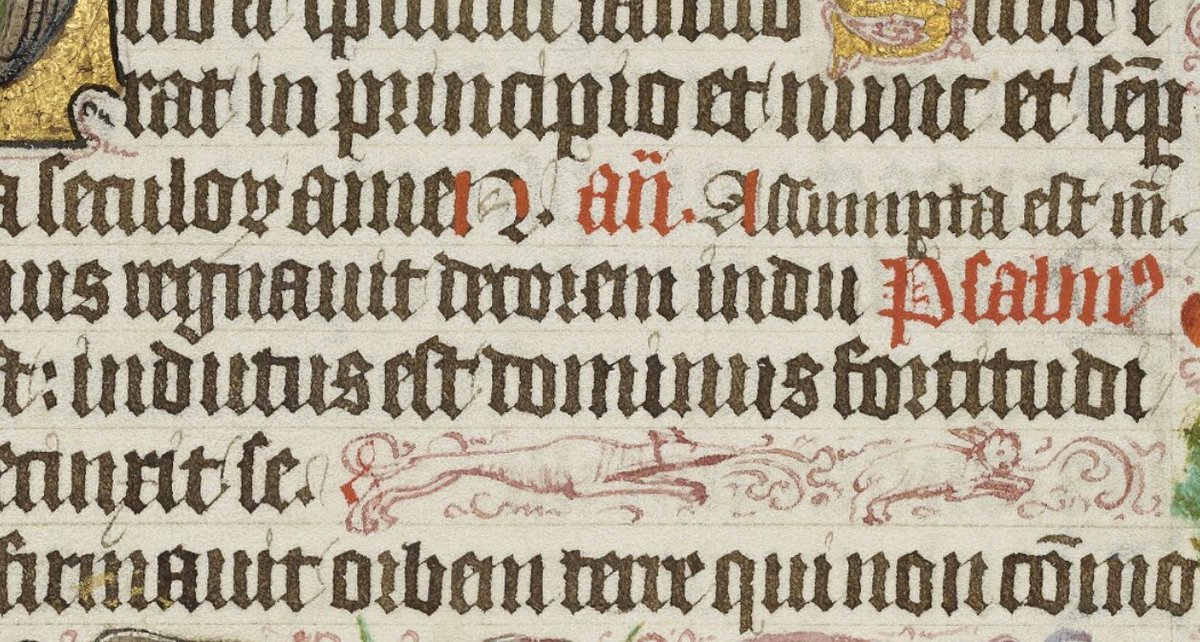 rat in principio et nunc et semp
a seculoꝝ amen. añ. Assumpta est m̃.
nus regnauit decorem indu Psalmꝰ
st: indutus est dominus fortitudi
ecinxit se.
firmauit orbem terre qui non cōmo